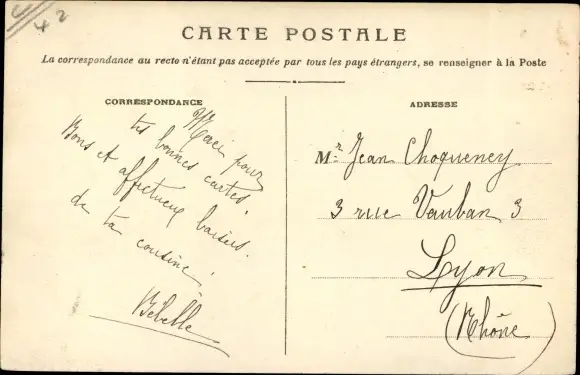 42
CARTE POSTALE
La correspondance au recto n'étant pas acceptée par tous les pays étrangers, se renseigner à la Poste
CORRESPONDANCE
Merci pour
tes bonnes cartes.
Bons et affectueux baisers
de ta cousine
Bébelle
ADRESSE
Mr Jean Choqueney
3 rue Vauban 3
Lyon
(Rhône)